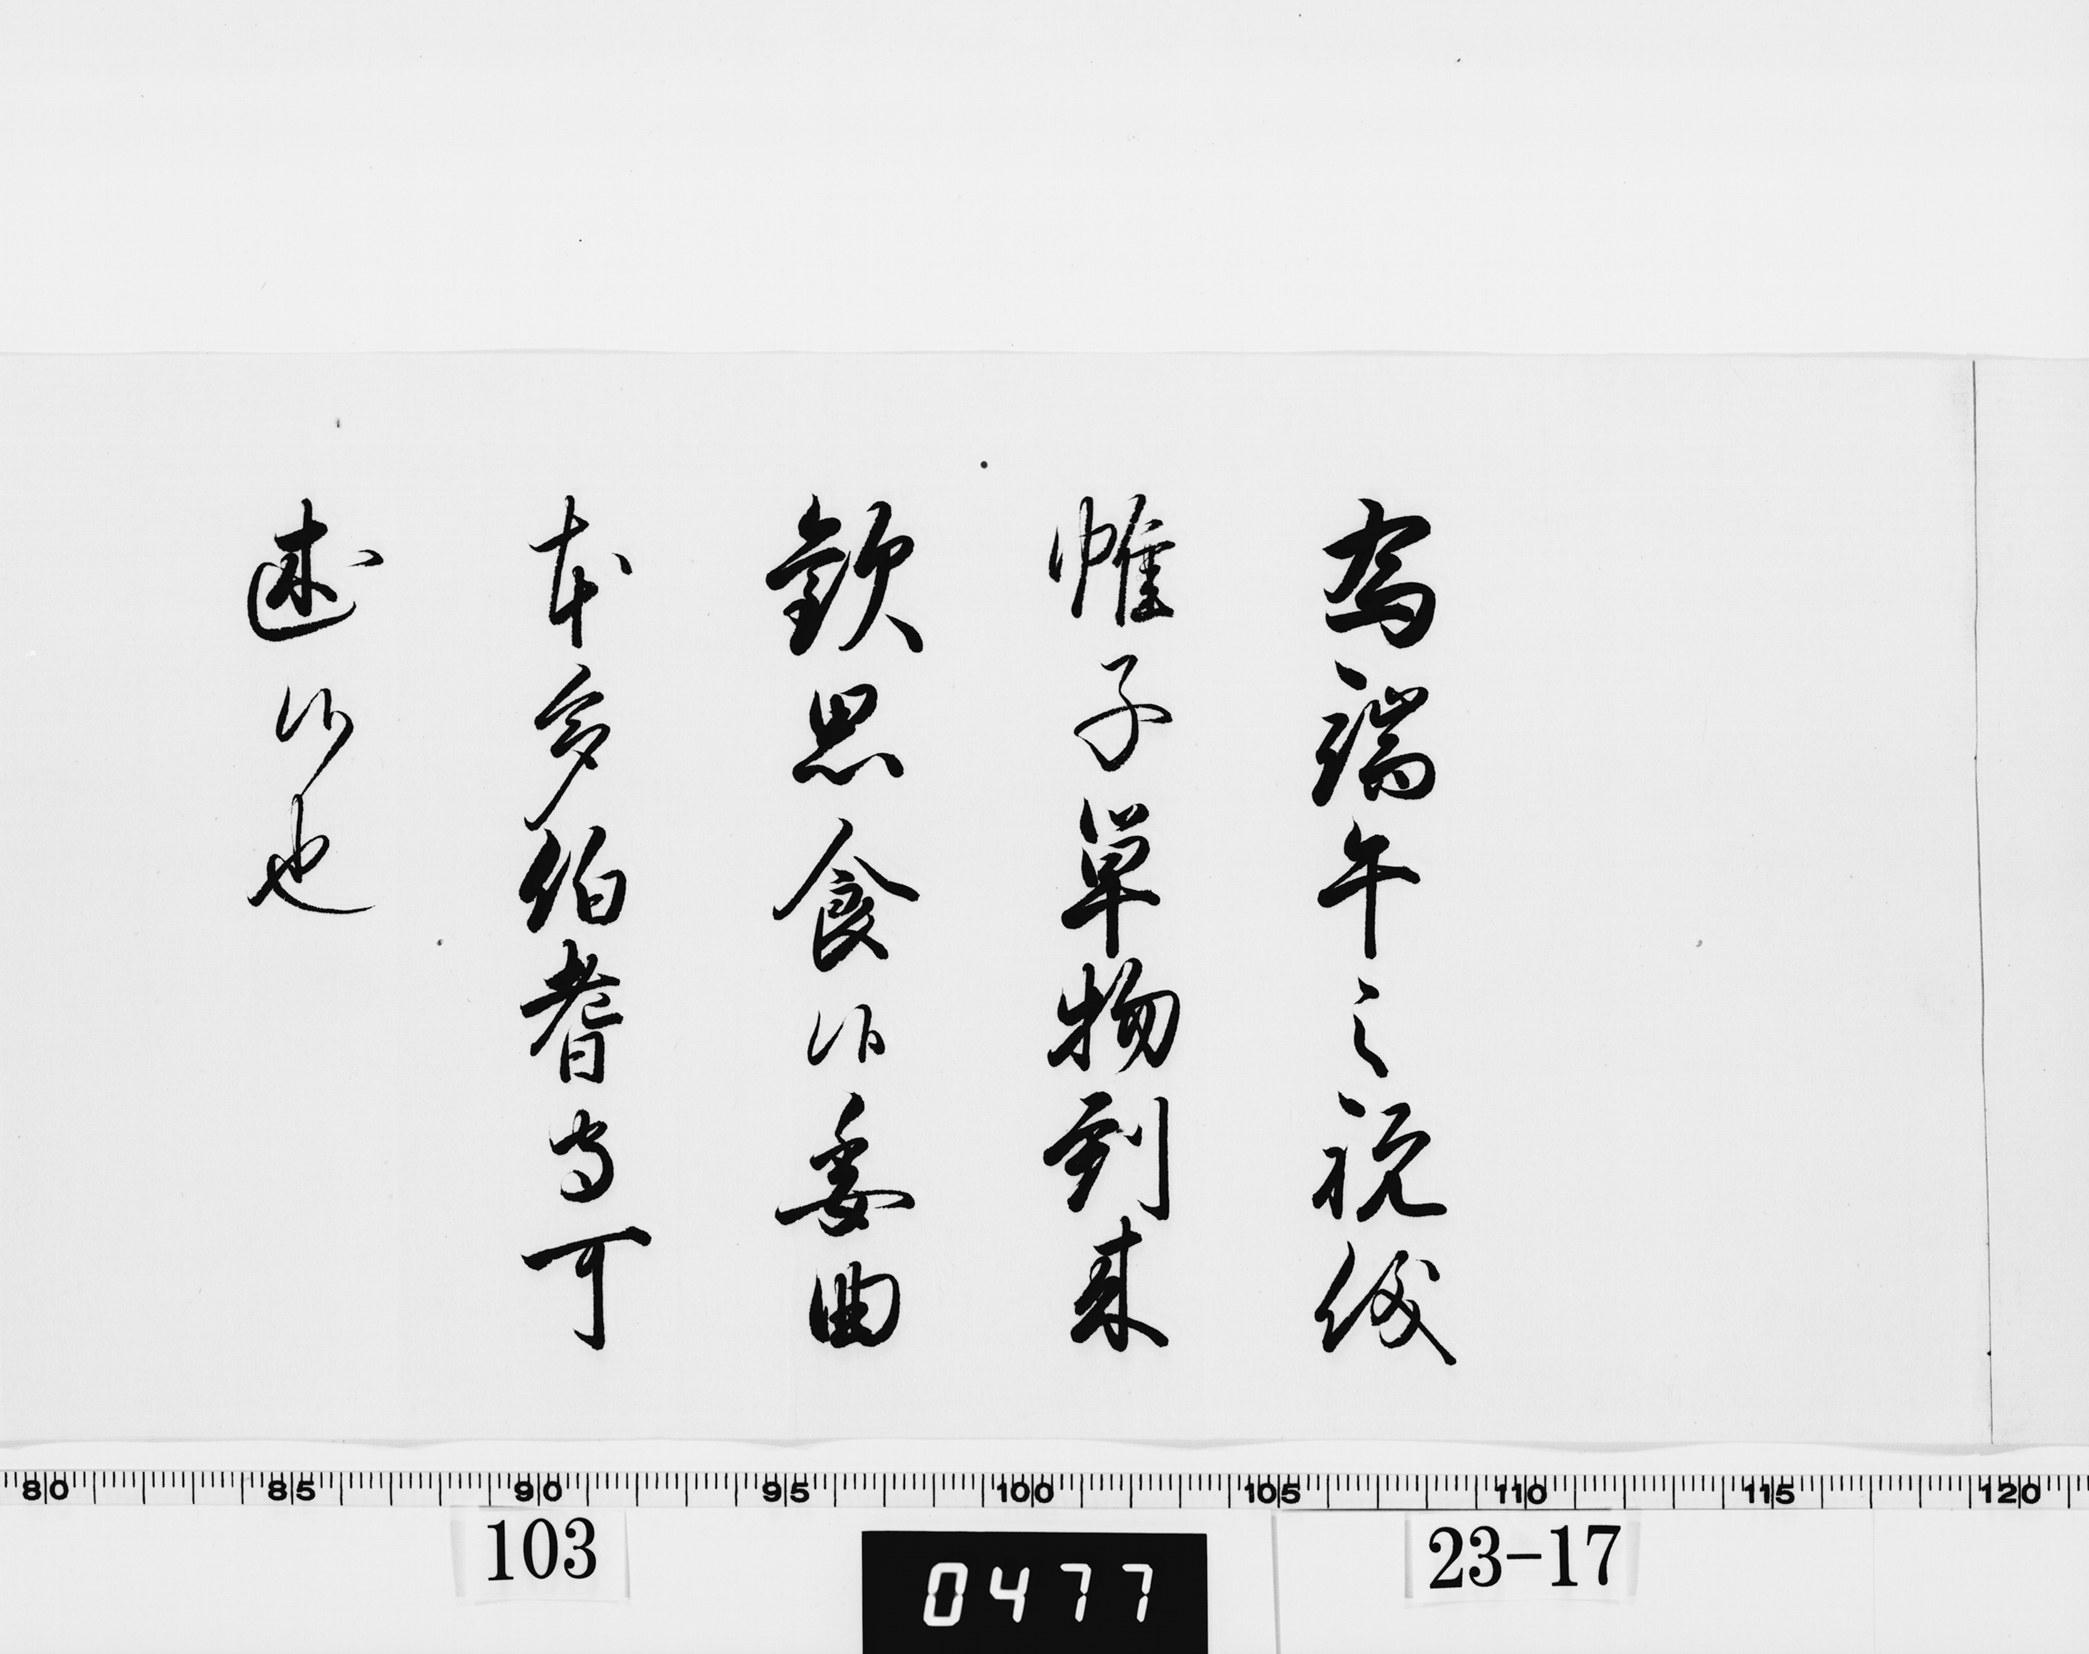 為端午之祝儀
帷子單物到来
歓思食候委曲
本多伯耆守可
述候也
80 85 90 95 100 105 110 115 120
103 0477 23-17